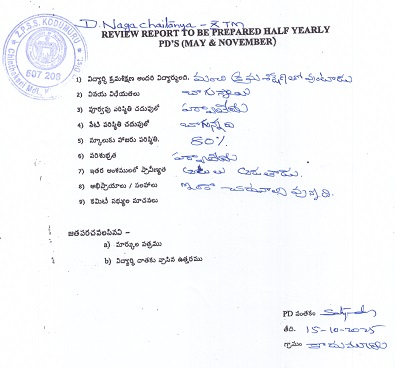 D. Naga chaitanya - X TM
REVIEW REPORT TO BE PREPARED HALF YEARLY
PD'S (MAY & NOVEMBER)
Z.P.S.S. KODUMURU
507 208
1) విద్యార్థి క్రమశిక్షణ అందరి విద్యార్థులతో.
2) వినయ విధేయతలు బాగున్నాయి
3) పూర్వపు పరిస్థితి చదువులో పర్వాలేదు
4) నేటి పరిస్థితి చదువులో బాగున్నది
5) స్కూలుకు హాజరు పరిస్థితి. 80%
6) పరిశుభ్రత పర్వాలేదు
7) ఇతర అంశములలో ప్రావీణ్యత ఆటలు ఆడుతాడు.
8) అభిప్రాయాలు / సలహాలు ఇంకా చదవాల్సి వున్నది.
9) కమిటీ సభ్యుల సూచనలు
జతపరచవలసినవి –
a) మార్కుల పత్రము
b) విద్యార్థి దాతకు వ్రాసిన ఉత్తరము
PD సంతకం
తేది. 15-10-2025
గ్రామం కోదుమూరు